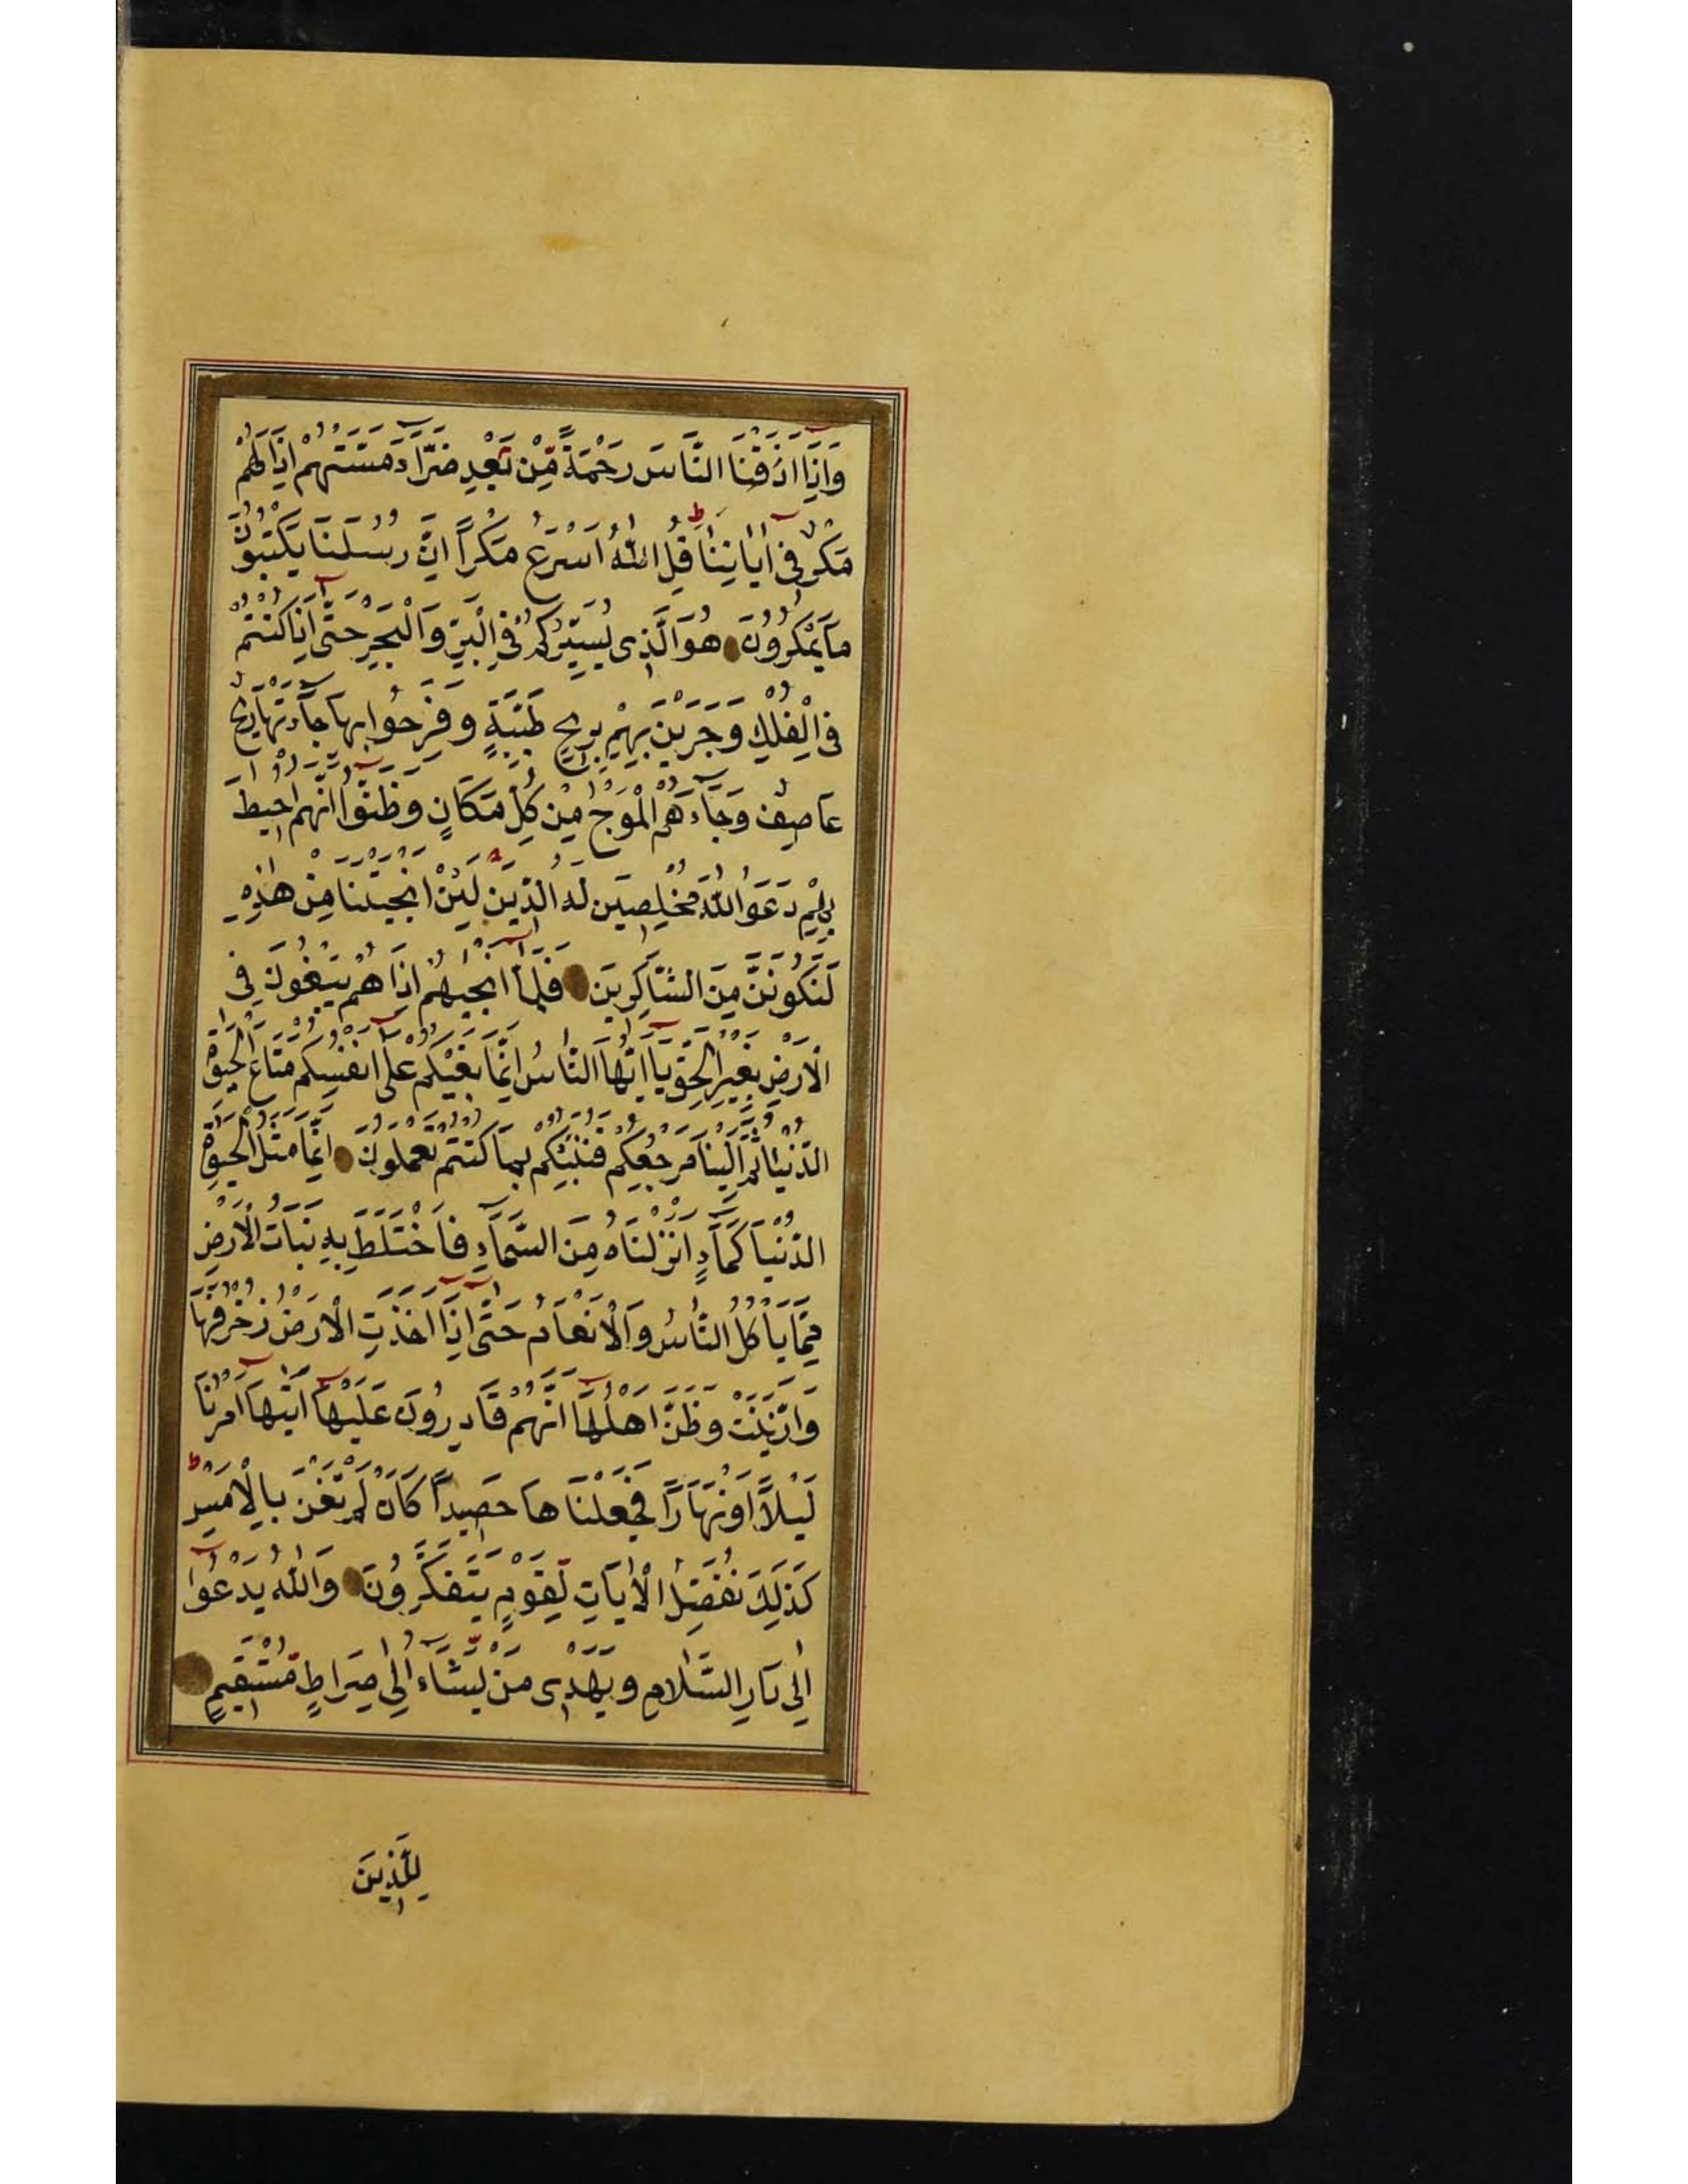 وَاِذَا اَذَقْنَا النَّاسَ رَحْمَةً مِّنْ بَعْدِ ضَرَّآءَ مَسَّتْهُمْ اِذَا لَهُمْ
مَكْرٌ فِى اٰيَاتِنَا قُلِ اللّٰهُ اَسْرَعُ مَكْرًا اِنَّ رُسُلَنَا يَكْتُبُوْنَ
مَا يَمْكُرُوْنَ هُوَ الَّذِى يُسَيِّرُكُمْ فِى الْبَرِّ وَالْبَحْرِ حَتّٰى اِذَا كُنْتُمْ
فِى الْفُلْكِ وَجَرَيْنَ بِهِمْ بِرِيحٍ طَيِّبَةٍ وَفَرِحُوا بِهَا جَآءَتْهَا رِيحٌ
عَاصِفٌ وَجَآءَهُمُ الْمَوْجُ مِنْ كُلِّ مَكَانٍ وَظَنُّوا اَنَّهُمْ اُحِيطَ
بِهِمْ دَعَوُا اللّٰهَ مُخْلِصِيَن لَهُ الدِّيَن لَئِنْ اَنْجَيْتَنَا مِنْ هٰذِهِ
لَنَكُونَنَّ مِنَ الشَّاكِرِينَ فَلَمَّا اَنْجٰيهُمْ اِذَا هُمْ يَبْغُونَ فِى
الْاَرْضِ بِغَيْرِ الْحَقِّ يَا اَيُّهَا النَّاسُ اِنَّمَا بَغْيُكُمْ عَلٰى اَنْفُسِكُمْ مَتَاعَ الْحَيٰوةِ
الدُّنْيَا ثُمَّ اِلَيْنَا مَرْجِعُكُمْ فَنُنَبِّئُكُمْ بِمَا كُنْتُمْ تَعْمَلُونَ اِنَّمَا مَثَلُ الْحَيٰوةِ
الدُّنْيَا كَمَآءٍ اَنْزَلْنَاهُ مِنَ السَّمَآءِ فَاخْتَلَطَ بِهِ نَبَاتُ الْاَرْضِ
مِمَّا يَاْكُلُ النَّاسُ وَالْاَنْعَامُ حَتّٰى اِذَا اَخَذَتِ الْاَرْضُ زُخْرُفَهَا
وَازَّيَّنَتْ وَظَنَّ اَهْلُهَا اَنَّهُمْ قَادِرُونَ عَلَيْهَا اَتٰيهَا اَمْرُنَا
لَيْلًا اَوْ نَهَارًا فَجَعَلْنَاهَا حَصِيدًا كَاَنْ لَمْ تَغْنَ بِالْاَمْسِ
كَذٰلِكَ نُفَصِّلُ الْاٰيَاتِ لِقَوْمٍ يَتَفَكَّرُونَ وَاللّٰهُ يَدْعُوا
اِلٰى دَارِ السَّلَامِ وَيَهْدِى مَنْ يَّشَآءُ اِلٰى صِرَاطٍ مُّسْتَقِيمٍ
لِلَّذِينَ